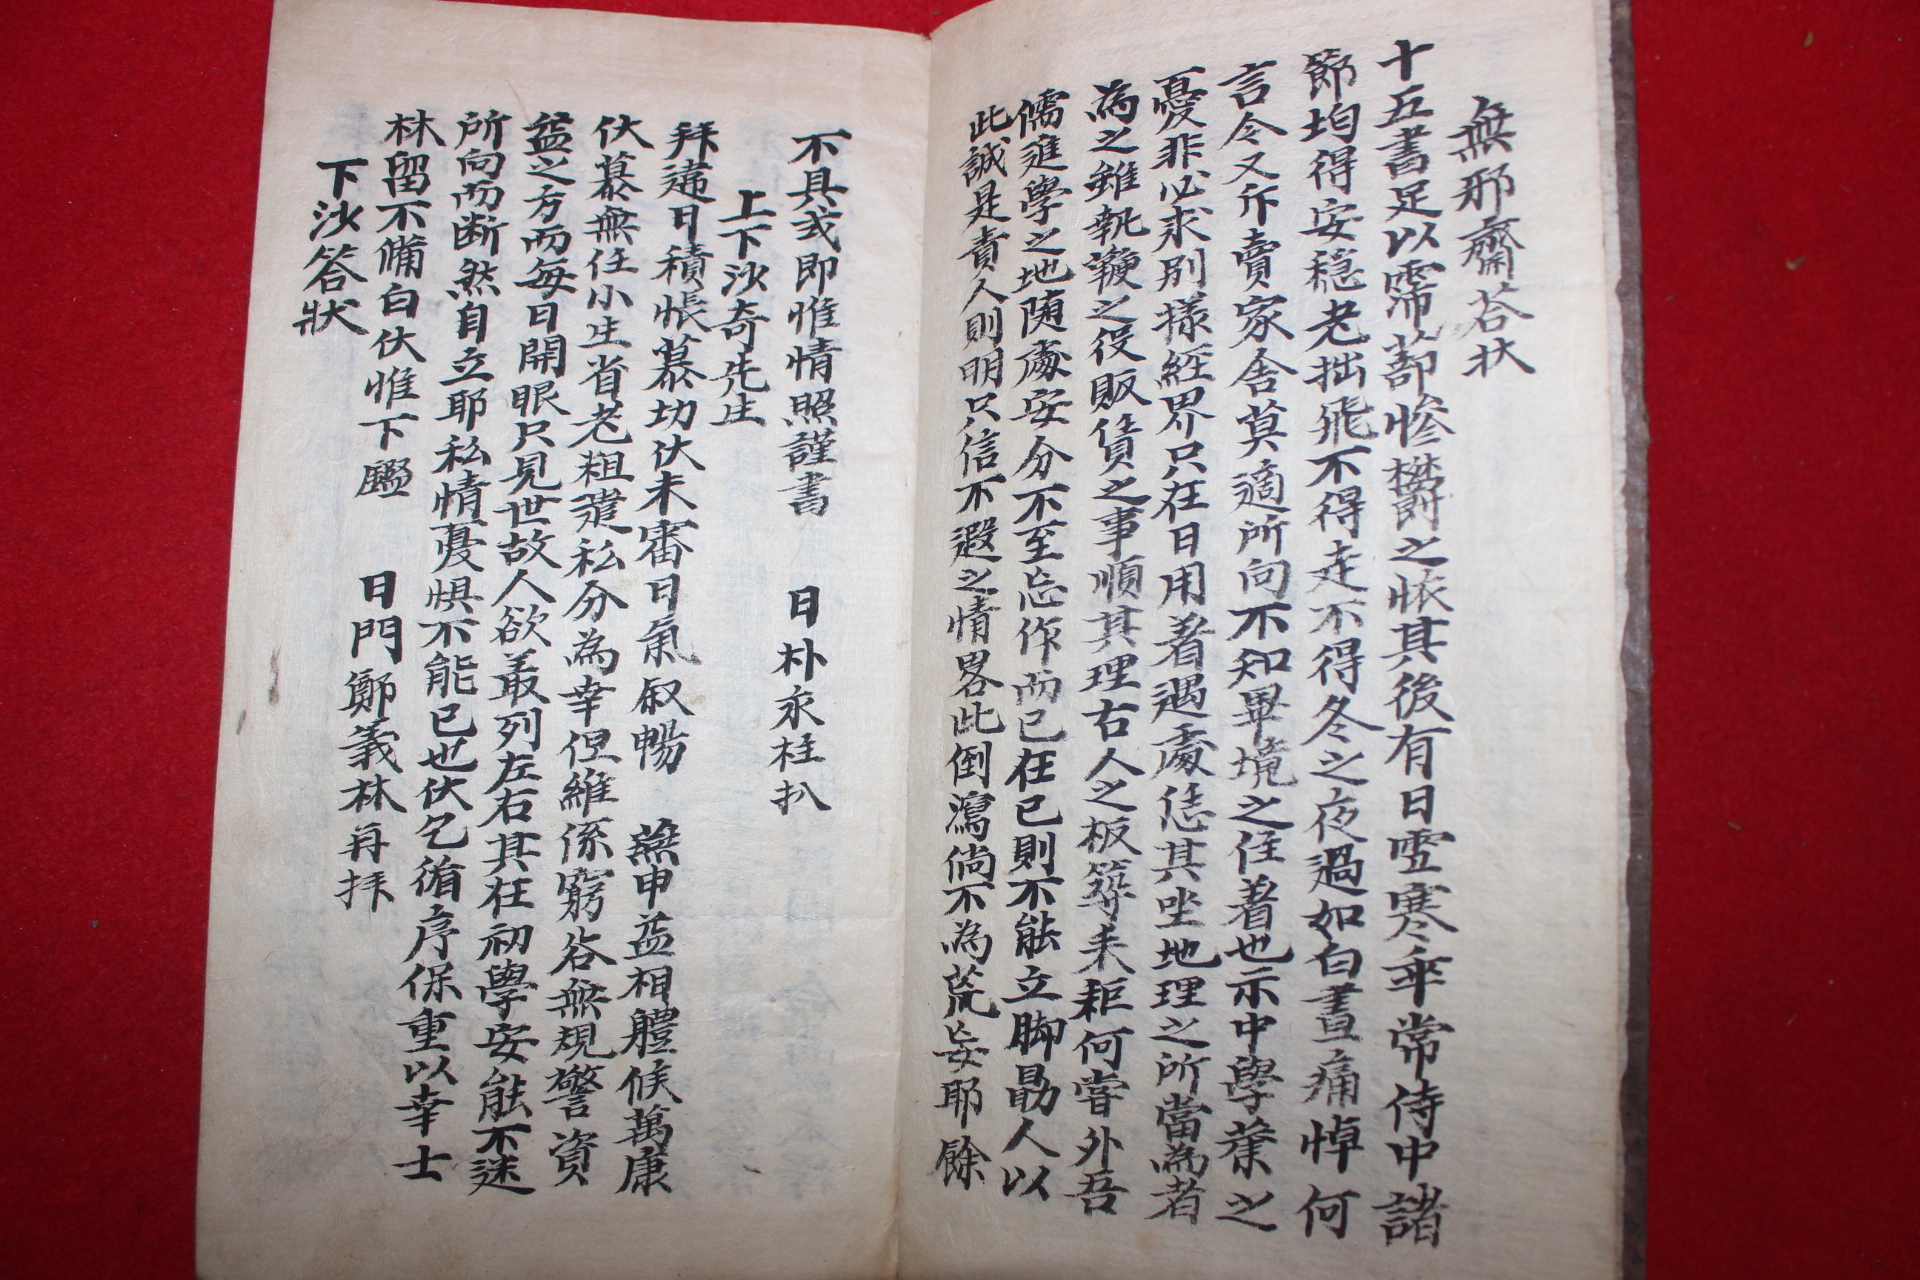 無邪齋答状
十五書足以霈蔀慘欝之悵其後有日雪寒乖常侍中諸
節均得安穏老拙飛不得走不得冬之夜過如白晝痛悼何
言今又斥賣家舍莫適所向不知畢境之住着也示中學業之
憂非必求別樣経界只在日用着遇處恁其坐地理之所當為者
為之雖執鞭之役販賃之事順其理右人之板築耒耟何嘗外吾
儒進學之地随處安分不至忘作而已在已則不能立脚勗人以
此誠是責人則明只信不遐之情畧此倒瀉倘不為荒妄耶餘
不具或即惟情照謹書　日朴永柱扒
上下沙奇先生
拜違日積悵慕切伏未審日氣叙暢　蕪申益相體候萬康
伏慕無任小生省老粗遣私分為幸但維係窮谷無規警資
益之方而每日開眼只見世故人欲叢列左右其在初學安能不迷
所向而断然自立耶私情憂惧不能已也伏乞循序保重以幸士
林留不備白伏惟下鑒　日門鄭義林再拜
下沙答狀